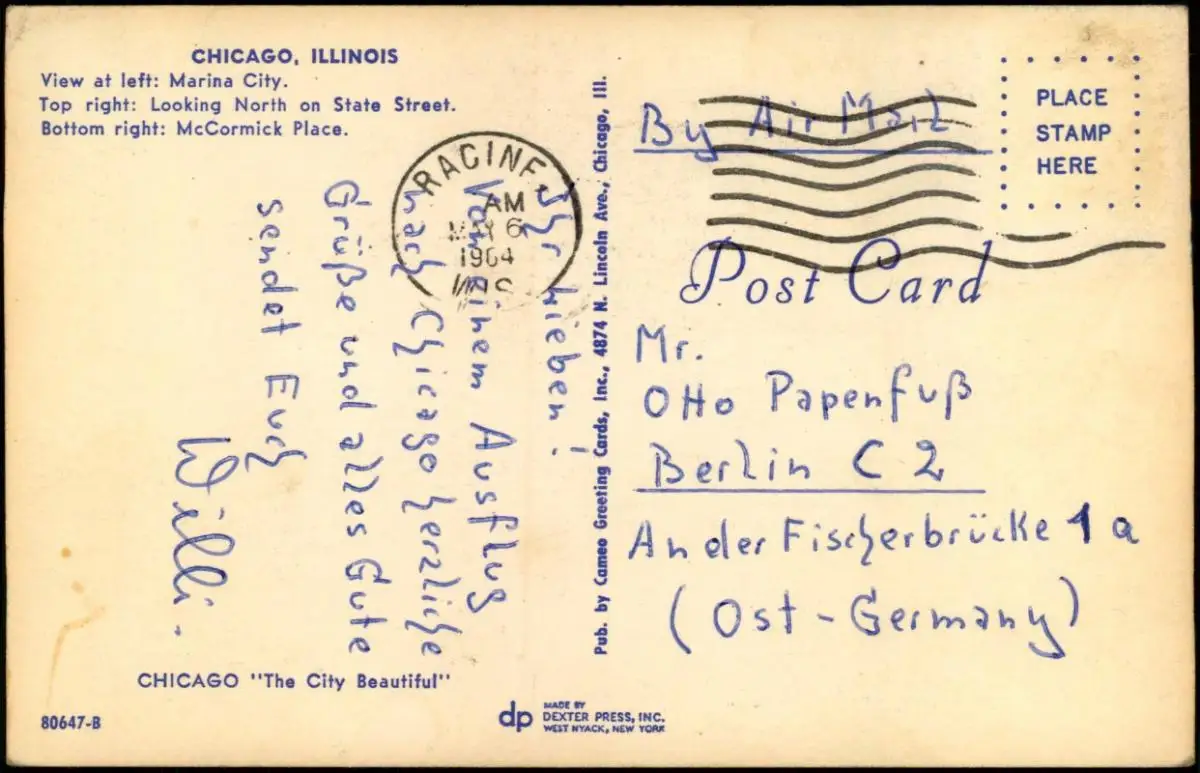 CHICAGO, ILLINOIS
View at left: Marina City.
Top right: Looking North on State Street.
Bottom right: McCormick Place.
RACINE,
AM
6
1964
WIS.
Ihr Lieben!
Von einem Ausflug
nach Chicago herzliche
Grüße und alles Gute
sendet Euch
Willi.
CHICAGO "The City Beautiful"
80647-B
Pub. by Cameo Greeting Cards, Inc., 4874 N. Lincoln Ave., Chicago, Ill.
dp
MADE BY
DEXTER PRESS, INC.
WEST NYACK, NEW YORK
By Air Mail
PLACE
STAMP
HERE
Post Card
Mr.
Otto Papenfuß
Berlin C 2
An der Fischerbrücke 1a
(Ost-Germany)